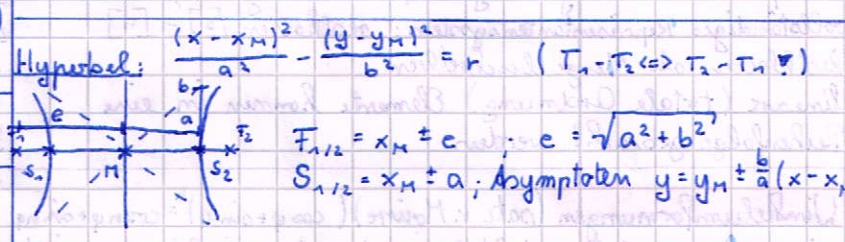 Hyperbel: (x - x_M)² / a² - (y - y_M)² / b² = r ( T₁ - T₂ <=> T₂ - T₁ ! )
b
e a
F₂
S₁ M S₂
F₁/₂ = x_M ± e ; e = √(a² + b²)
S₁/₂ = x_M ± a ; Asymptoten y = y_M ± b/a (x - x_M